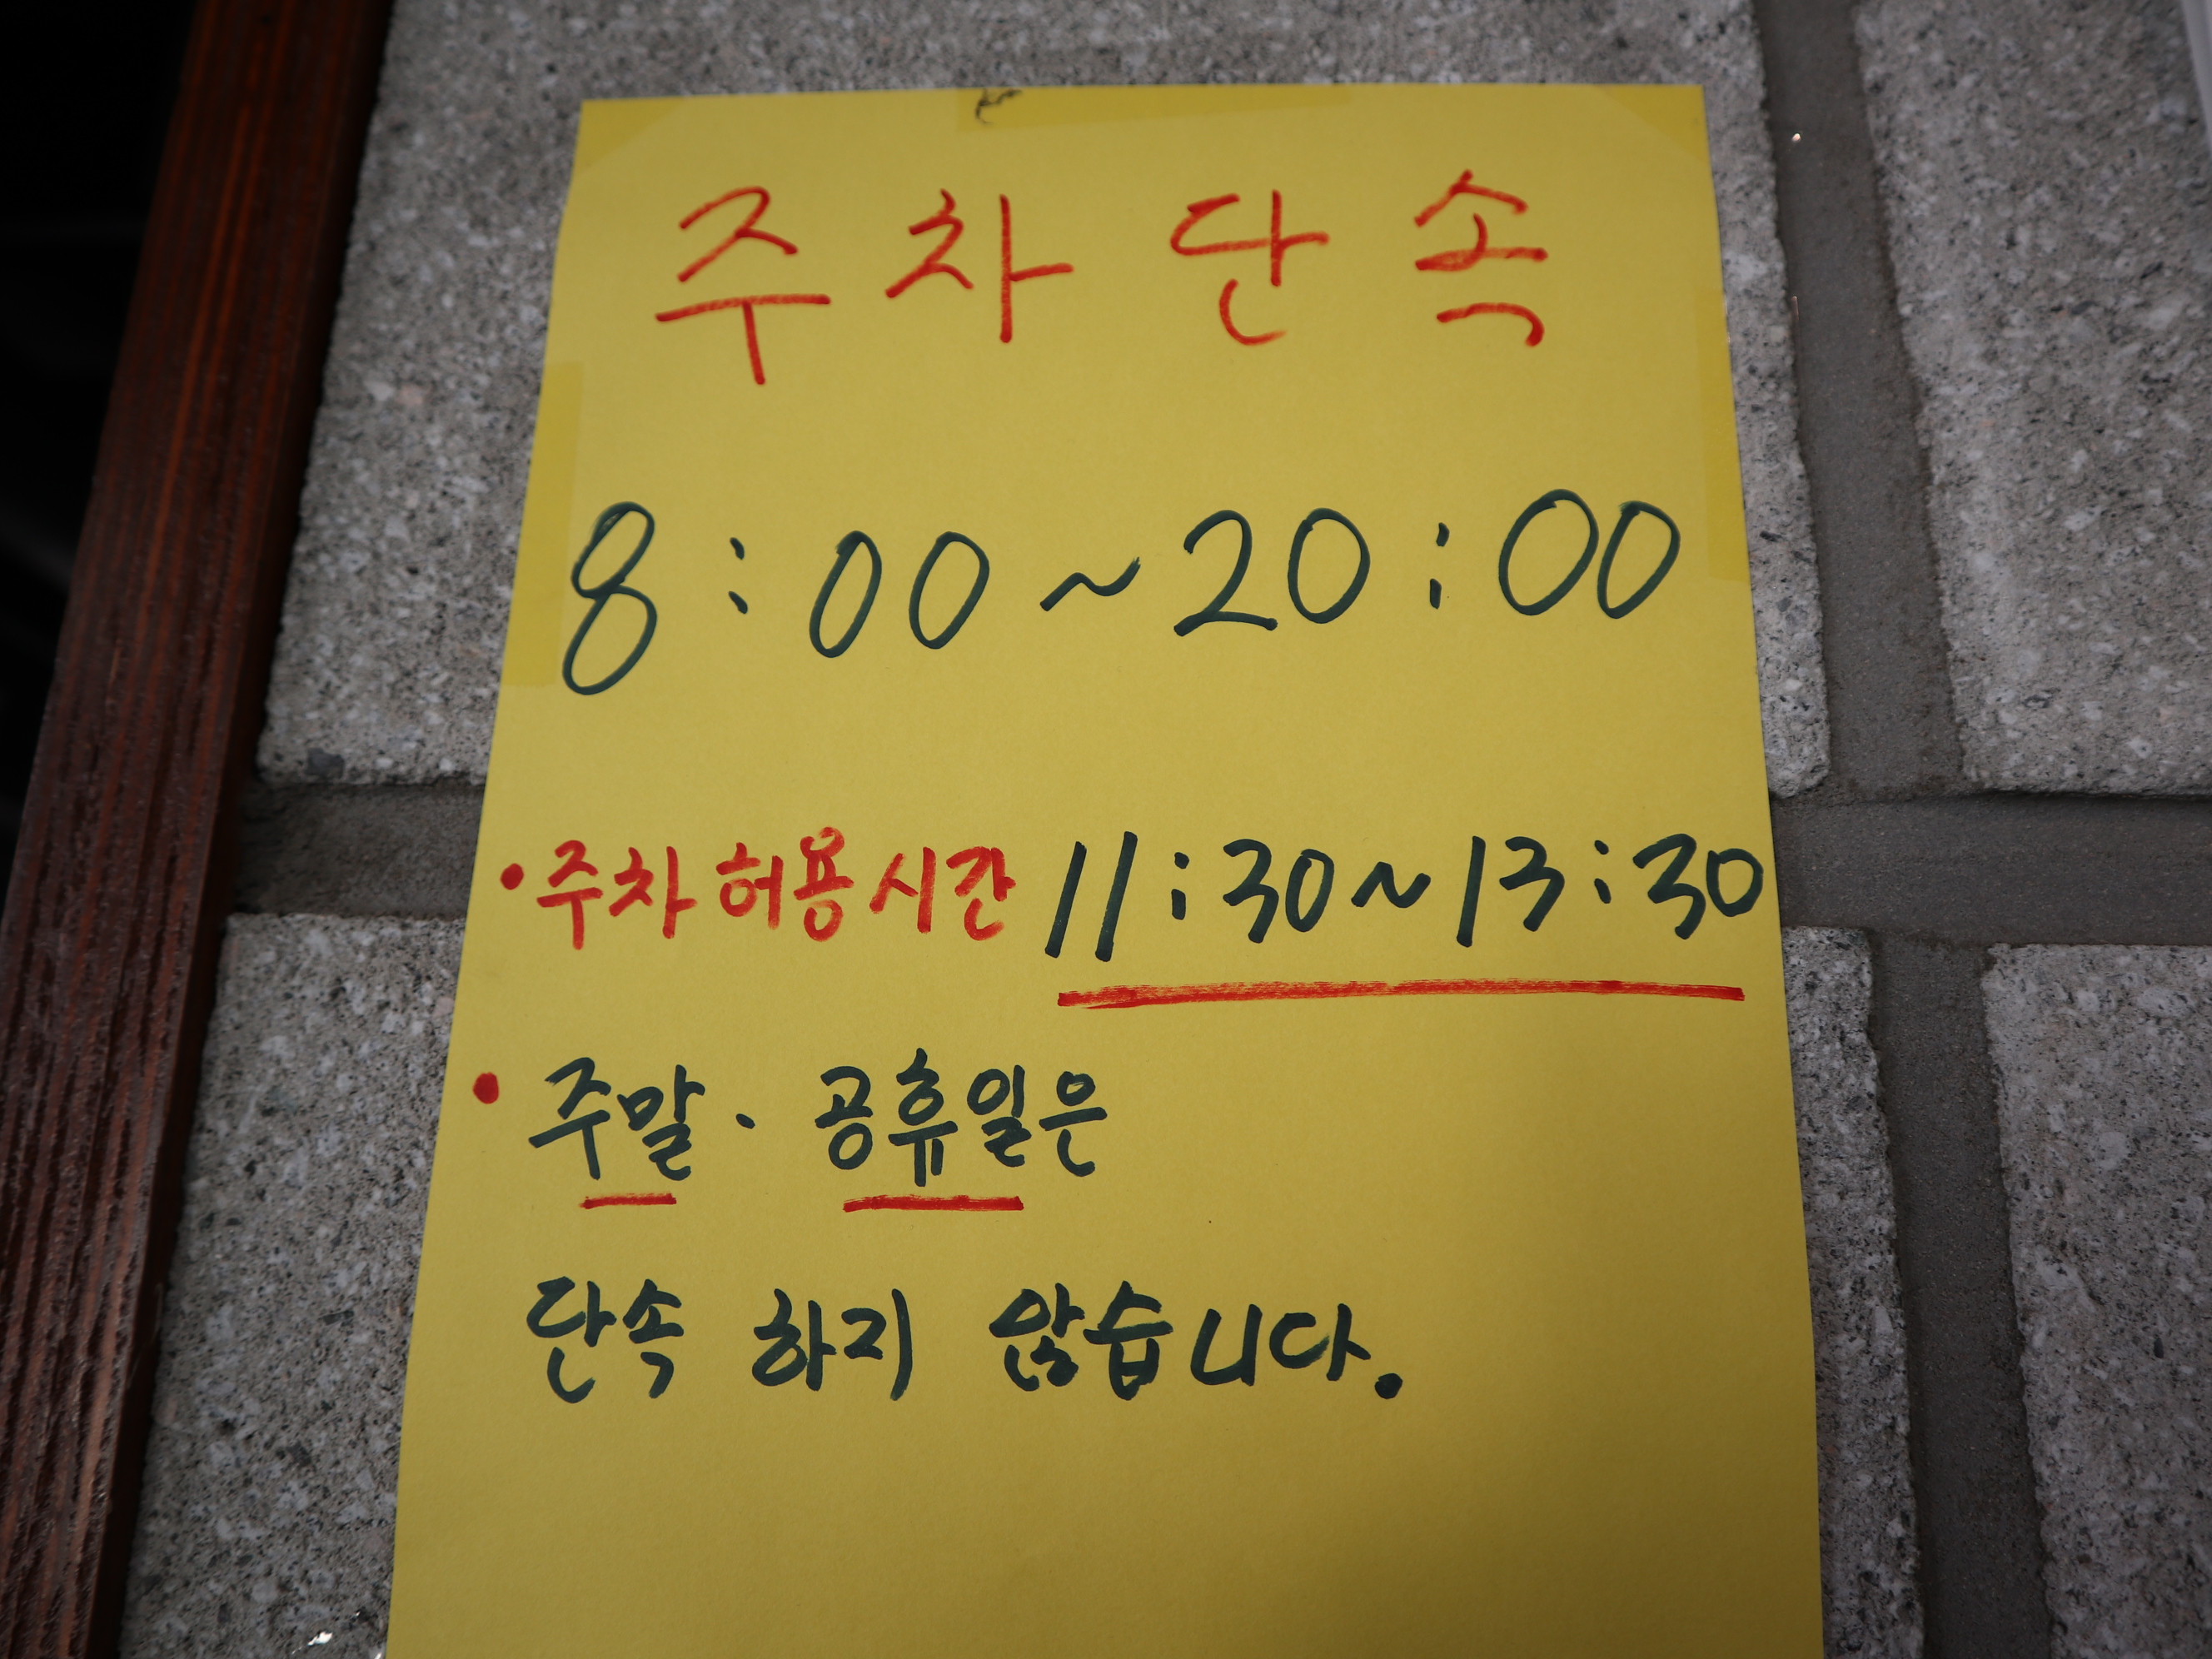 주차단속
8:00~20:00
•주차허용시간 11:30~13:30
• 주말 · 공휴일은
단속 하지 않습니다.